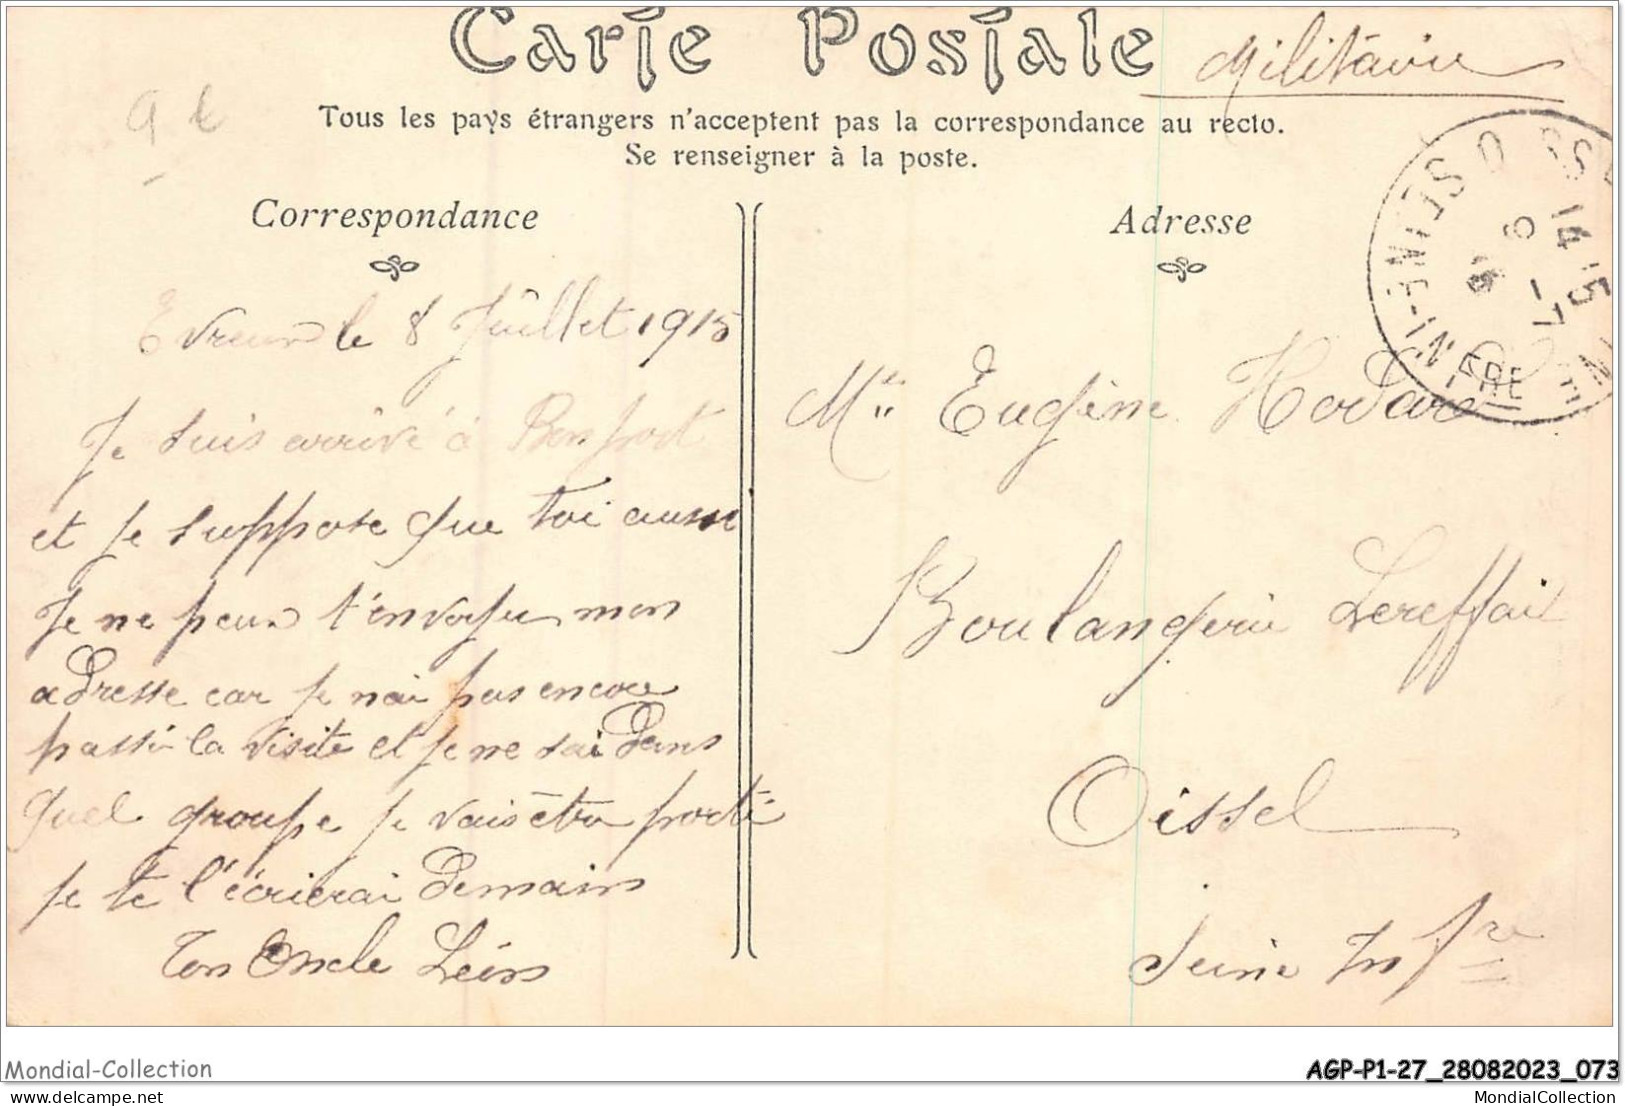 Carte Postale
Militairie
9 €
Tous les pays étrangers n'acceptent pas la correspondance au recto.
Se renseigner à la poste.
Correspondance
Adresse
OISSEL
14 15
9 -7
15
SEINE-INFRE
Evreux le 8 Juillet 1915
Je suis arrivé à Bon port
et je suppose que toi aussi
Je ne peux t'envoyer mon
adresse car je nai pas encore
passé la visite et je ne sai dans
quel groupe je vais être porté
je te l'écrierai demain
Ton Oncle Léon
Mlle Eugène
Boulangerie Lereffait
Oissel
Seine Infre
Mondial-Collection
AGP-P1-27_28082023_073
www.delcampe.net
MondialCollection